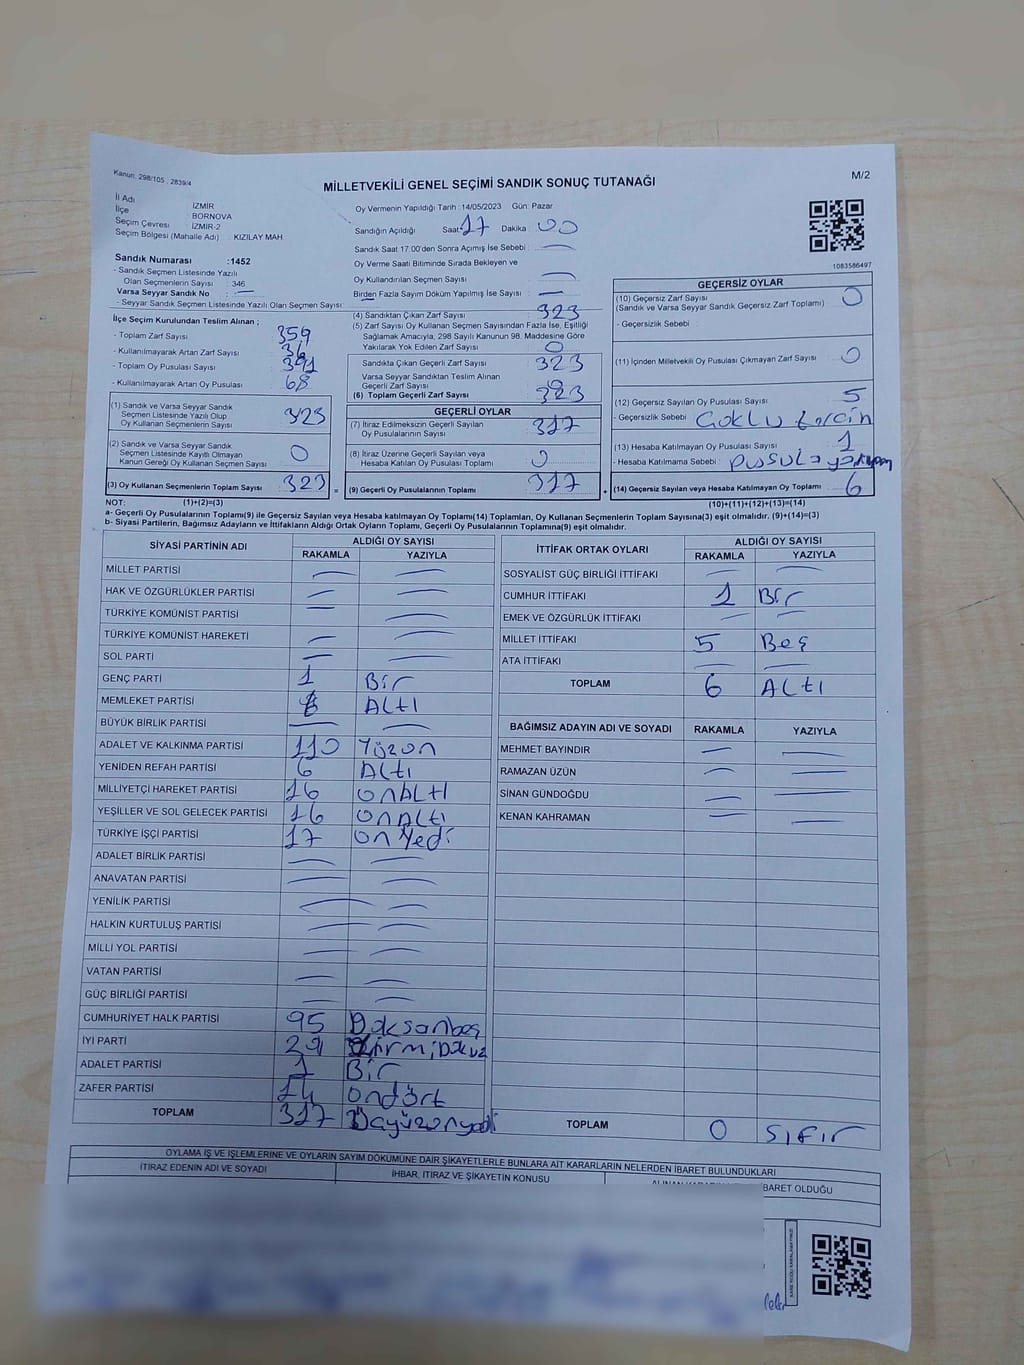 Kanun; 298/105 ; 2839/4
MİLLETVEKİLİ GENEL SEÇİMİ SANDIK SONUÇ TUTANAĞI
M/2
İl Adı : İZMİR
İlçe : BORNOVA
Seçim Çevresi : İZMİR-2
Seçim Bölgesi (Mahalle Adı) : KIZILAY MAH.
Sandık Numarası :1452
- Sandık Seçmen Listesinde Yazılı
Olan Seçmenlerin Sayısı : 346
Varsa Seyyar Sandık No : —
- Seyyar Sandık Seçmen Listesinde Yazılı Olan Seçmen Sayısı:
Oy Vermenin Yapıldığı Tarih :14/05/2023 Gün: Pazar
Sandığın Açıldığı Saat: 17 Dakika : 00
Sandık Saat 17:00'den Sonra Açımış İse Sebebi : —
Oy Verme Saati Bitiminde Sırada Bekleyen ve
Oy Kullandırılan Seçmen Sayısı : —
Birden Fazla Sayım Döküm Yapılmış İse Sayısı : —
1083586497
İlçe Seçim Kurulundan Teslim Alınan ;
- Toplam Zarf Sayısı : 359
- Kullanılmayarak Artan Zarf Sayısı : 36
- Toplam Oy Pusulası Sayısı : 391
- Kullanılmayarak Artan Oy Pusulası : 68
(1) Sandık ve Varsa Seyyar Sandık
Seçmen Listesinde Yazılı Olup
Oy Kullanan Seçmenlerin Sayısı : 323
(2) Sandık ve Varsa Seyyar Sandık
Seçmen Listesinde Kayıtlı Olmayan
Kanun Gereği Oy Kullanan Seçmen Sayısı : 0
(3) Oy Kullanan Seçmenlerin Toplam Sayısı : 323
(4) Sandıktan Çıkan Zarf Sayısı : 323
(5) Zarf Sayısı Oy Kullanan Seçmen Sayısından Fazla İse, Eşitliği
Sağlamak Amacıyla, 298 Sayılı Kanunun 98. Maddesine Göre
Yakılarak Yok Edilen Zarf Sayısı : 0
Sandıkta Çıkan Geçerli Zarf Sayısı : 323
Varsa Seyyar Sandıktan Teslim Alınan
Geçerli Zarf Sayısı :
(6) Toplam Geçerli Zarf Sayısı : 323
GEÇERLİ OYLAR
(7) İtiraz Edilmeksizin Geçerli Sayılan
Oy Pusulalarının Sayısı : 317
(8) İtiraz Üzerine Geçerli Sayılan veya
Hesaba Katılan Oy Pusulası Toplamı : 0
= (9) Geçerli Oy Pusulalarının Toplamı : 317 +
GEÇERSİZ OYLAR
(10) Geçersiz Zarf Sayısı : 0
(Sandık ve Varsa Seyyar Sandık Geçersiz Zarf Toplamı)
- Geçersizlik Sebebi :
(11) İçinden Milletvekili Oy Pusulası Çıkmayan Zarf Sayısı : 0
(12) Geçersiz Sayılan Oy Pusulası Sayısı : 5
- Geçersizlik Sebebi : Çoklu tercih
(13) Hesaba Katılmayan Oy Pusulası Sayısı : 1
- Hesaba Katılmama Sebebi : pusula
(14) Geçersiz Sayılan veya Hesaba Katılmayan Oy Toplamı : 6
NOT: (1)+(2)=(3) (10)+(11)+(12)+(13)=(14)
a- Geçerli Oy Pusulalarının Toplamı(9) ile Geçersiz Sayılan veya Hesaba katılmayan Oy Toplamı(14) Toplamları, Oy Kullanan Seçmenlerin Toplam Sayısına(3) eşit olmalıdır. (9)+(14)=(3)
b- Siyasi Partilerin, Bağımsız Adayların ve İttifakların Aldığı Ortak Oyların Toplamı, Geçerli Oy Pusulalarının Toplamına(9) eşit olmalıdır.
SİYASİ PARTİNİN ADI ALDIĞI OY SAYISI
RAKAMLA YAZIYLA
MİLLET PARTİSİ — —
HAK VE ÖZGÜRLÜKLER PARTİSİ — —
TÜRKİYE KOMÜNİST PARTİSİ — —
TÜRKİYE KOMÜNİST HAREKETİ — —
SOL PARTİ — —
GENÇ PARTİ 1 Bir
MEMLEKET PARTİSİ 6 Altı
BÜYÜK BİRLİK PARTİSİ — —
ADALET VE KALKINMA PARTİSİ 110 Yüzon
YENİDEN REFAH PARTİSİ 6 Altı
MİLLİYETÇİ HAREKET PARTİSİ 16 onAltı
YEŞİLLER VE SOL GELECEK PARTİSİ 16 onAltı
TÜRKİYE İŞÇİ PARTİSİ 17 on Yedi
ADALET BİRLİK PARTİSİ — —
ANAVATAN PARTİSİ — —
YENİLİK PARTİSİ — —
HALKIN KURTULUŞ PARTİSİ — —
MİLLİ YOL PARTİSİ — —
VATAN PARTİSİ — —
GÜÇ BİRLİĞİ PARTİSİ — —
CUMHURİYET HALK PARTİSİ 95 Doksanbeş
İYİ PARTİ 29
ADALET PARTİSİ 1 Bir
ZAFER PARTİSİ 14 ondört
TOPLAM 317
İTTİFAK ORTAK OYLARI ALDIĞI OY SAYISI
RAKAMLA YAZIYLA
SOSYALİST GÜÇ BİRLİĞİ İTTİFAKI — —
CUMHUR İTTİFAKI 1 Bir
EMEK VE ÖZGÜRLÜK İTTİFAKI — —
MİLLET İTTİFAKI 5 Beş
ATA İTTİFAKI — —
TOPLAM 6 Altı
BAĞIMSIZ ADAYIN ADI VE SOYADI RAKAMLA YAZIYLA
MEHMET BAYINDIR — —
RAMAZAN ÜZÜN — —
SİNAN GÜNDOĞDU — —
KENAN KAHRAMAN — —
TOPLAM 0 Sıfır
OYLAMA İŞ VE İŞLEMLERİNE VE OYLARIN SAYIM DÖKÜMÜNE DAİR ŞİKAYETLERLE BUNLARA AİT KARARLARIN NELERDEN İBARET BULUNDUKLARI
İTİRAZ EDENİN ADI VE SOYADI İHBAR, İTİRAZ VE ŞİKAYETİN KONUSU İBARET OLDUĞU